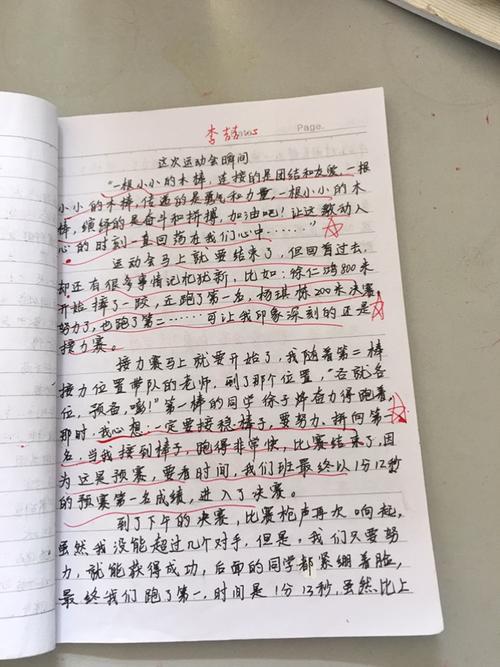 李喆
Page.
这次运动会瞬间
“一根小小的木棒，连接的是团结和友爱，一根
小小的木棒，传递的是勇气和力量，一根小小的木
棒，缤纷的是奋斗和拼搏，加油吧！让这激动人
心的时刻一直回荡在我们心中……”
运动会马上就要结束了，但回看过去，
却还有很多事情记忆犹新，比如：徐仁鸿800米
开始摔了一跤，还跑了第一名，杨琪栋200米决赛，
努力了，也跑了第二……可让我印象深刻的还是
接力赛。
接力赛马上就要开始了，我随着第二棒
接力位置带队的老师，到了那个位置，“各就各
位，预备，嘭！”第一棒的同学徐子烨奋力得跑着，
那时，我心想：一定要接稳棒子，要努力，拼向第一
名，当我接到棒子，跑得非常快，比赛结束了，因
为这是预赛，要看时间，我们班最终以1分12秒
的预赛第一名成绩，进入了决赛。
到了下午的决赛，比赛枪声再次响起，
虽然我没能超过几个对手，但是，我们只要努
力，就能获得成功，后面的同学都紧绷着脸，
最终我们跑了第一，时间是1分13秒，虽然比上